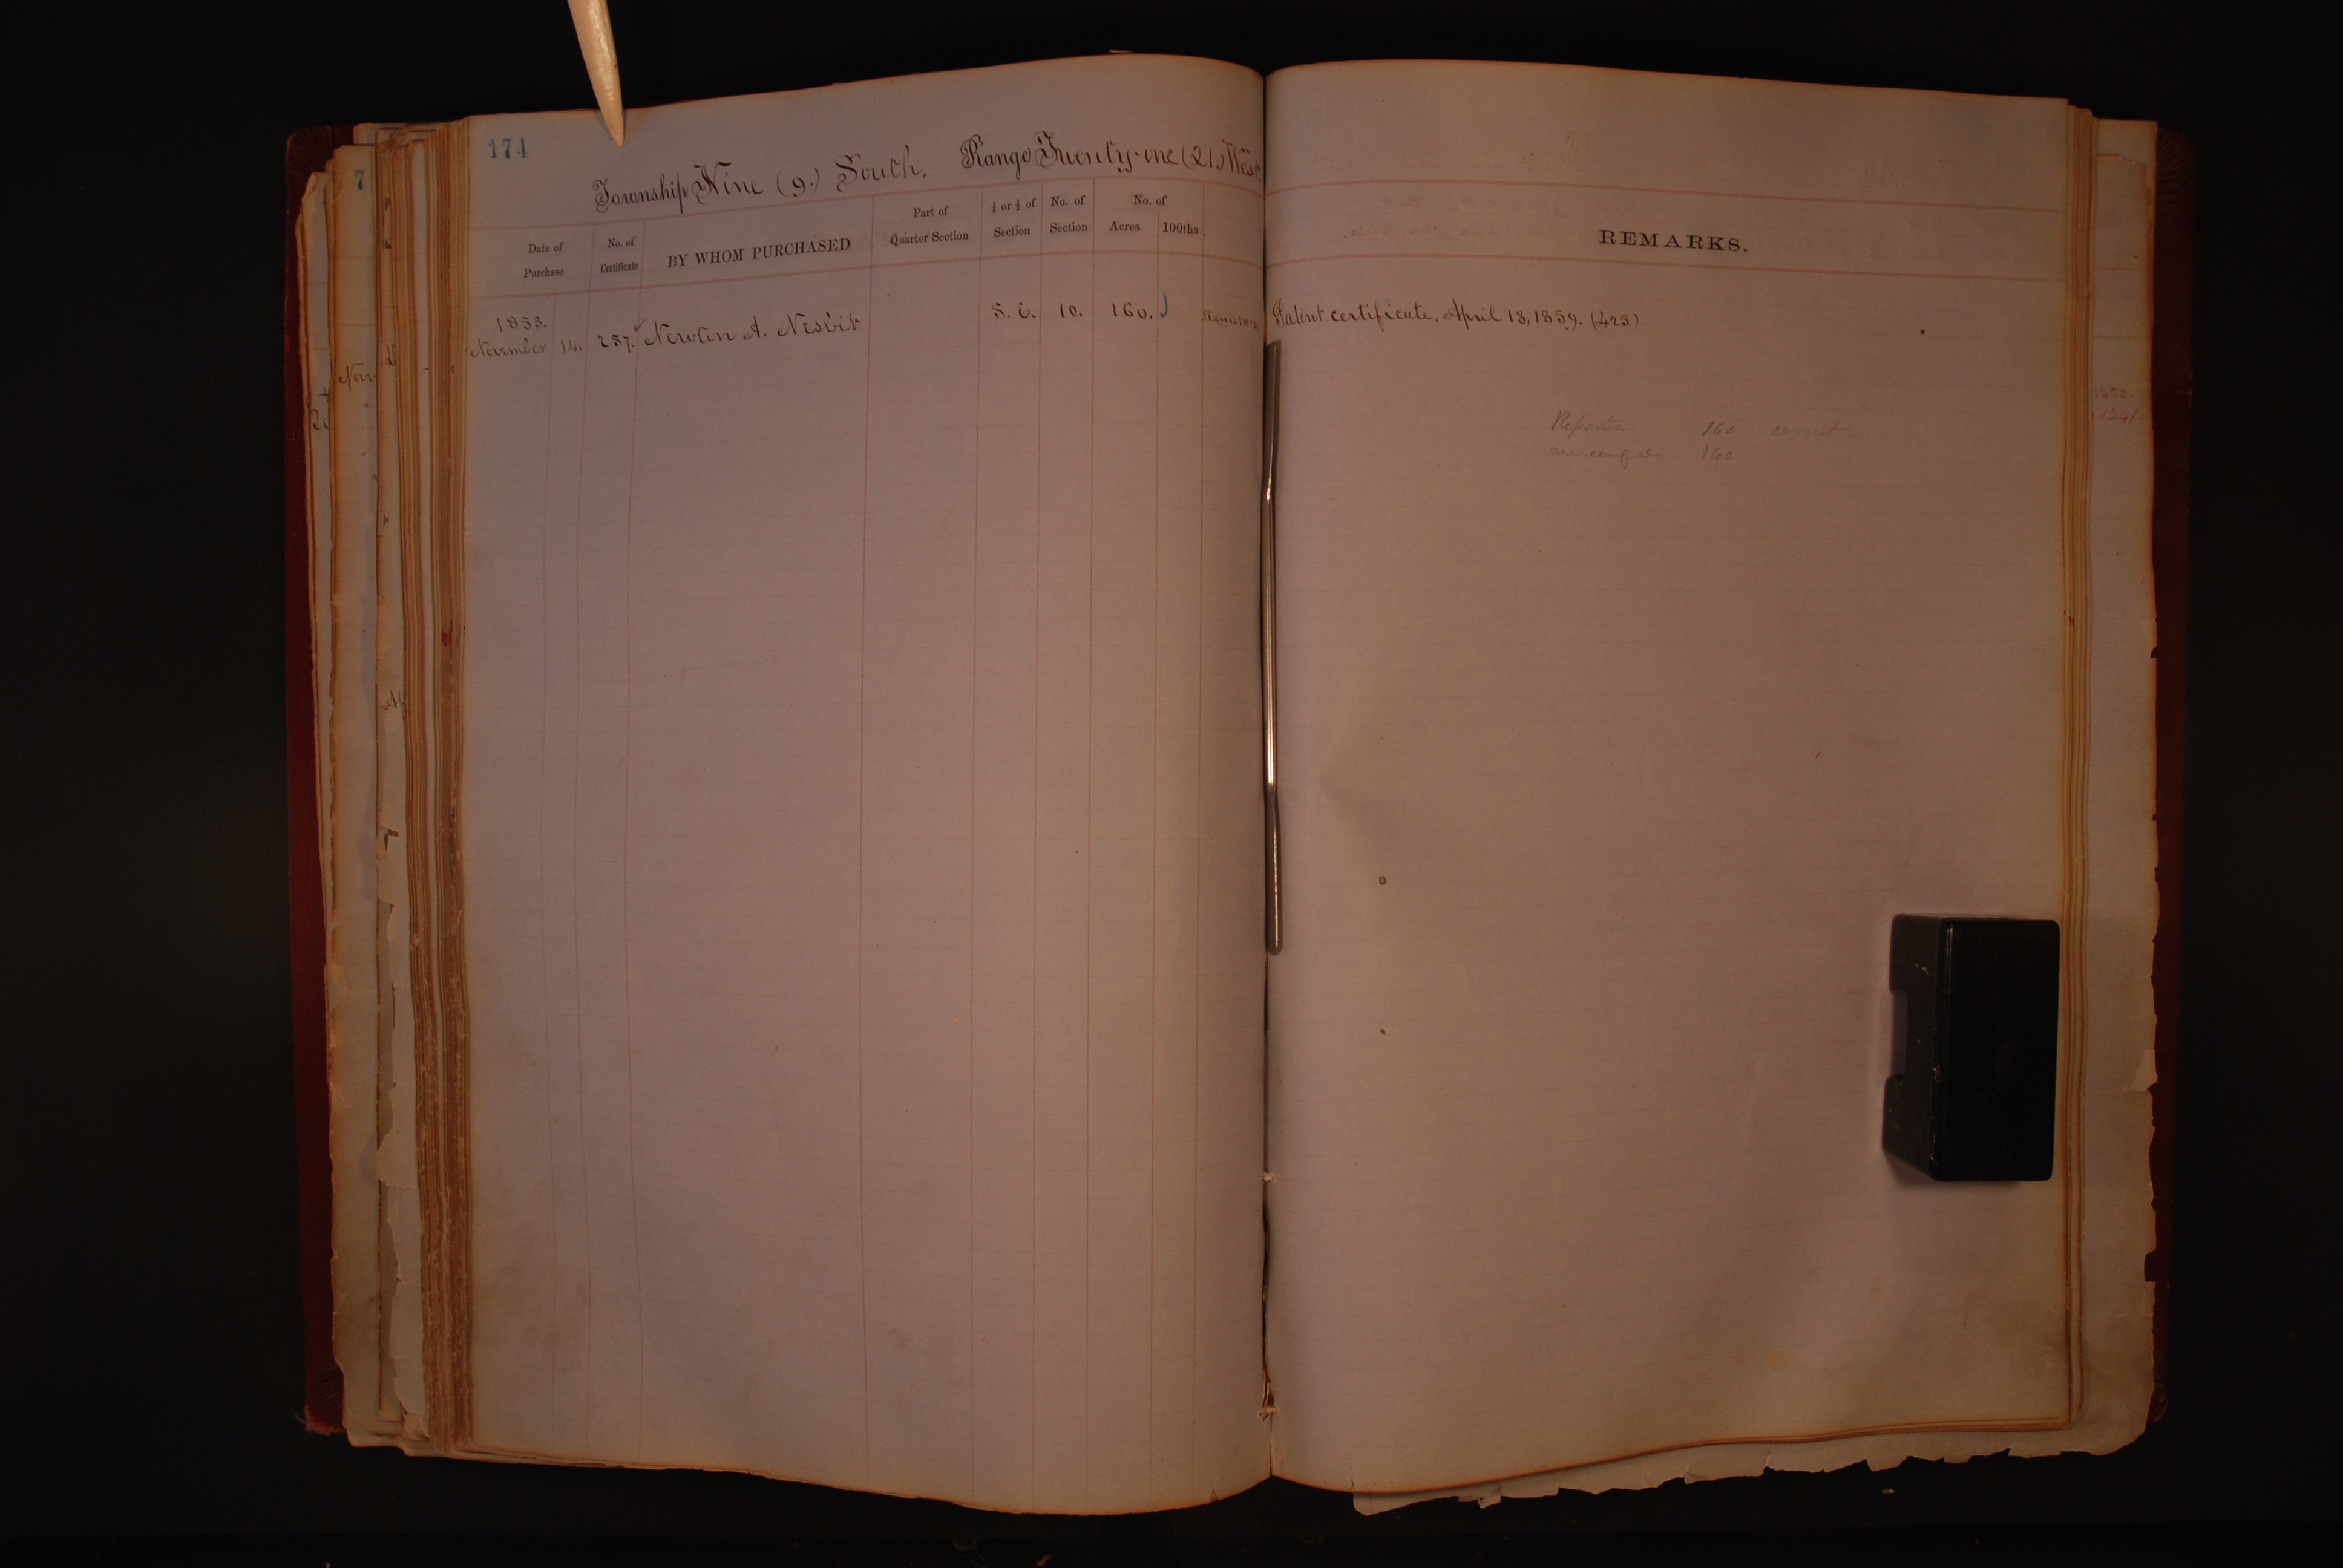 174
Township Nine (9.) South, Range Twenty-one (21.) West.
Date of Purchase
No. of Certificate
BY WHOM PURCHASED
Part of Quarter Section
½ or ¼ of Section
No. of Section
No. of
Acres 100ths
REMARKS.
1853.
November 14. 257. Newton A. Nesbit S. E. 10. 160. Patent certificate, April 13, 1859. (425.)
Reported 160 correct
160
7
Nov
1853.
1241.